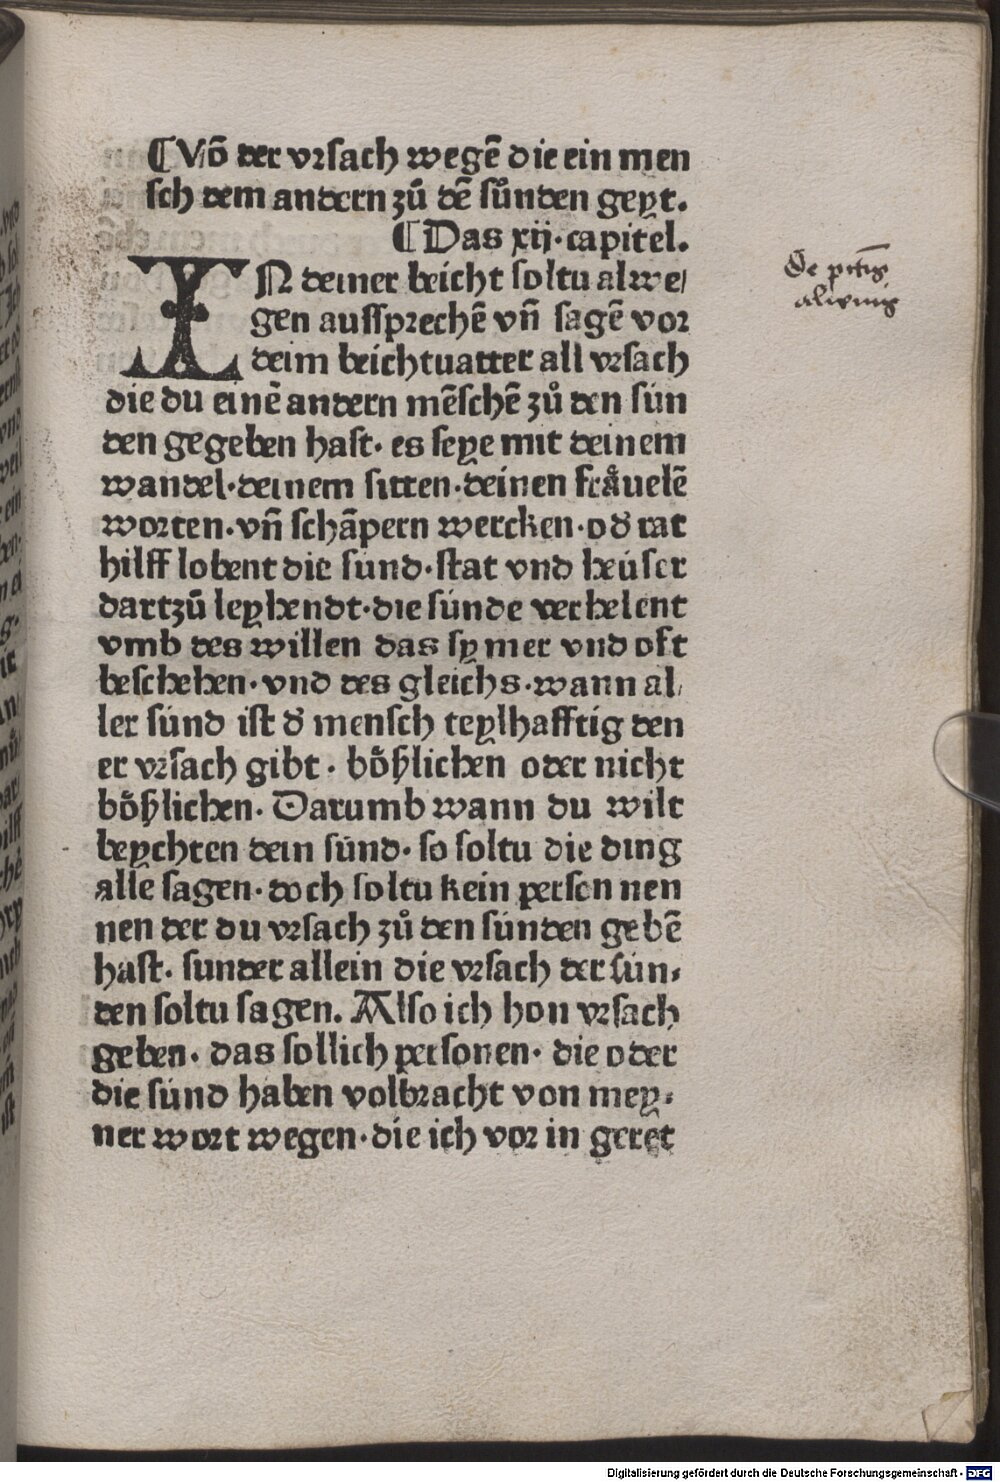 ¶ Vō der vrsach wegē die ein men
sch dem andern zů dē sünden geyt.
¶ Das xij. capitel.
IN deiner beicht soltu alwe/
gen aussprechē vñ sagē vor
deim beichtuatter all vrsach
die du einē andern mēschē zů den sün
den gegeben hast. es seye mit deinem
wandel. deinem sitten. deinen fråuelē
worten. vñ schāpern wercken. od rat
hilff lobent die sünd. stat vnd heüser
dartzů leyhendt. die sünde verhelent
vmb des willen das sy mer vnd oft
beschehen. vnd des gleichs. wann al/
ler sünd ist d mensch teylhafftig den
er vrsach gibt. bößlichen oder nicht
bößlichen. Darumb wann du wilt
beychten dein sünd. so soltu die ding
alle sagen. doch soltu kein person nen
nen der du vrsach zů den sünden gebē
hast. sunder allein die vrsach der sün⸗
den soltu sagen. Also ich hon vrsach
geben. das sollich personen. die oder
die sünd haben volbracht von mey⸗
ner wort wegen. die ich vor in geret
De pctīs
alienis
Digitalisierung gefördert durch die Deutsche Forschungsgemeinschaft - DFG